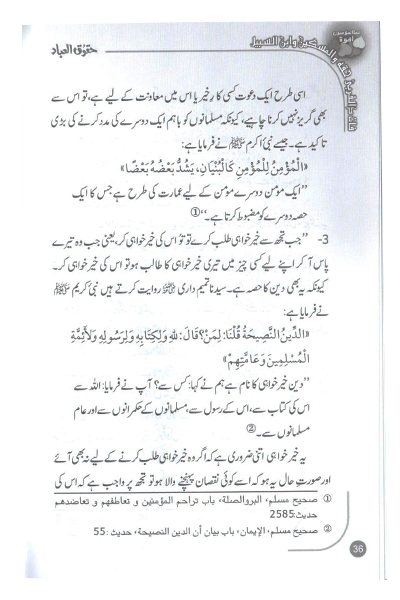 حقوق العباد
اسی طرح ایک دعوت کسی کارِ خیر یا اس میں معاونت کے لیے ہے، تو اس سے
بھی گریز نہیں کرنا چاہیے، کیونکہ مسلمانوں کو باہم ایک دوسرے کی مدد کرنے کی بڑی
تاکید ہے۔ جیسے نبی اکرم ﷺ نے فرمایا ہے:
«الْمُؤْمِنُ لِلْمُؤْمِنِ كَالْبُنْيَانِ، يَشُدُّ بَعْضُهُ بَعْضًا»
’’ایک مومن دوسرے مومن کے لیے عمارت کی طرح ہے جس کا ایک
حصہ دوسرے کو مضبوط کرتا ہے۔‘‘①
3- ’’جب تجھ سے خیر خواہی طلب کرے تو تُو اس کی خیر خواہی کر، یعنی جب وہ تیرے
پاس آ کر اپنے لیے کسی چیز میں تیری خیر خواہی کا طالب ہو تو اس کی خیر خواہی کر۔
کیونکہ یہ بھی دین کا حصہ ہے۔ سیدنا تمیم داری رضی اللہ عنہ روایت کرتے ہیں نبی کریم ﷺ
نے فرمایا ہے:
«الدِّينُ النَّصِيحَةُ قُلْنَا: لِمَنْ؟ قَالَ: لِلّٰهِ وَلِكِتَابِهِ وَلِرَسُولِهِ وَلِأَئِمَّةِ
الْمُسْلِمِينَ وَعَامَّتِهِمْ»
’’دین خیر خواہی کا نام ہے ہم نے کہا: کس سے؟ آپ نے فرمایا: اللہ سے
اس کی کتاب سے، اس کے رسول سے، مسلمانوں کے حکمرانوں سے اور عام
مسلمانوں سے۔②
یہ خیر خواہی اتنی ضروری ہے کہ اگر وہ خیر خواہی طلب کرنے کے لیے نہ بھی آئے
اور صورتِ حال یہ ہو کہ اسے کوئی نقصان پہنچنے والا ہو تو تجھ پر واجب ہے کہ اس کی
① صحیح مسلم، البر والصلة، باب تراحم المؤمنین و تعاطفهم و تعاضدهم
حدیث: 2585
② صحیح مسلم، الإیمان، باب بیان أن الدین النصیحة، حدیث: 55
36